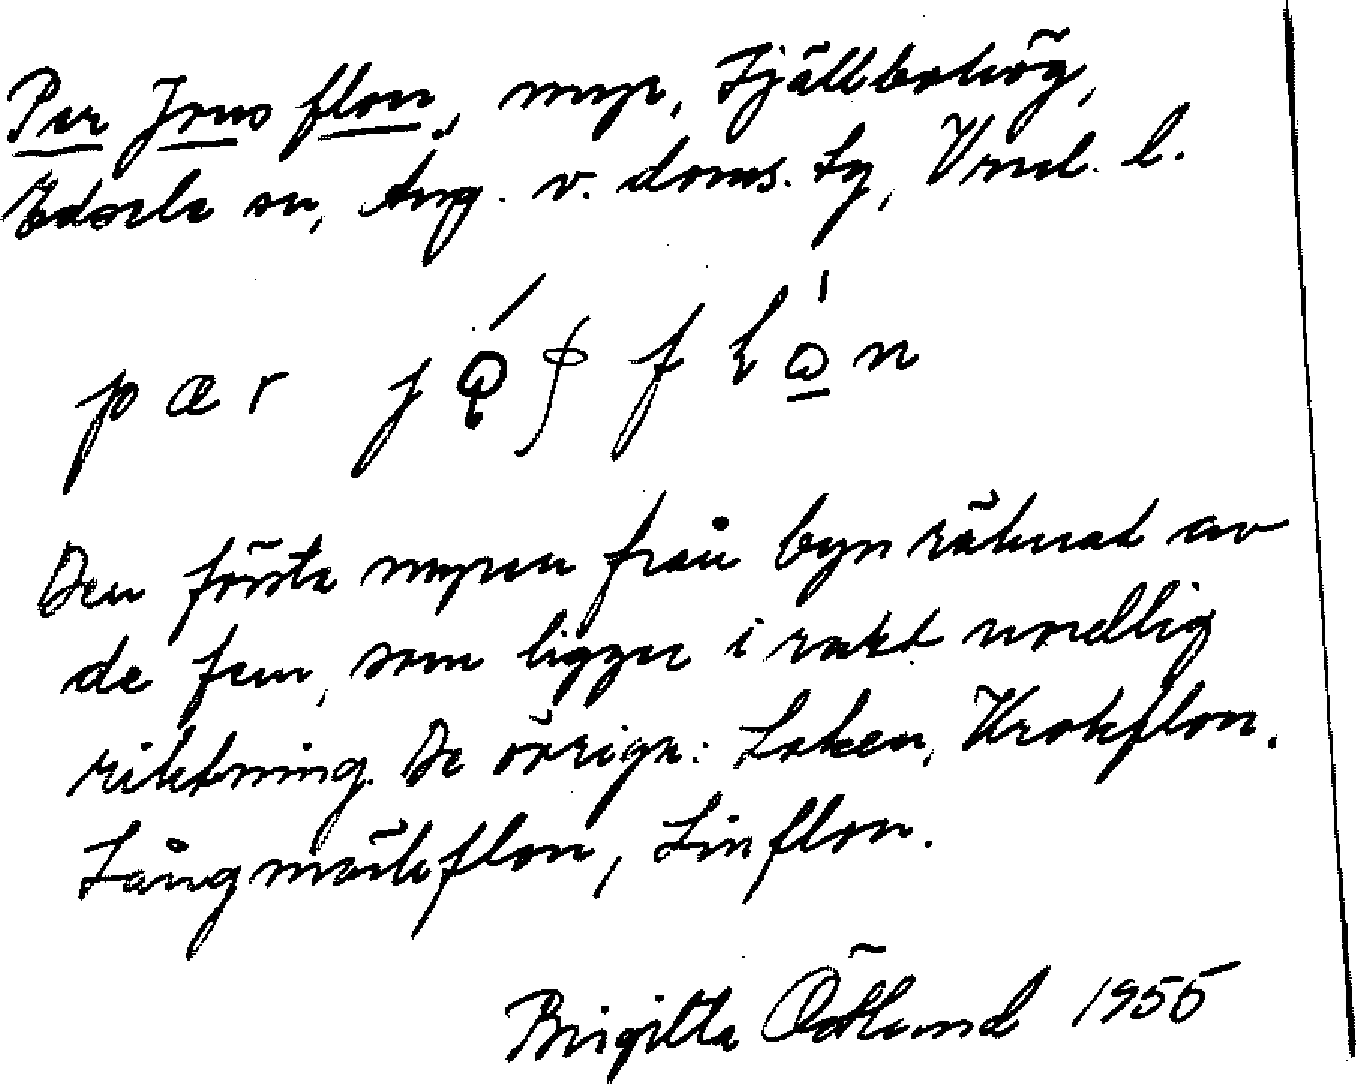 Per Jonsflon, myr, Fjällbohög,
Edsele sn, Ång. v. doms. Lg, Vrnl. l.
pær jǫ́ʂ flån
Den första myren från byn räknat av
de fem, som ligger i rakt nordlig
riktning. De övriga: Laken, Krokflon.
Långmörtsflon, Linflon.
Birgitta Östlund 1955